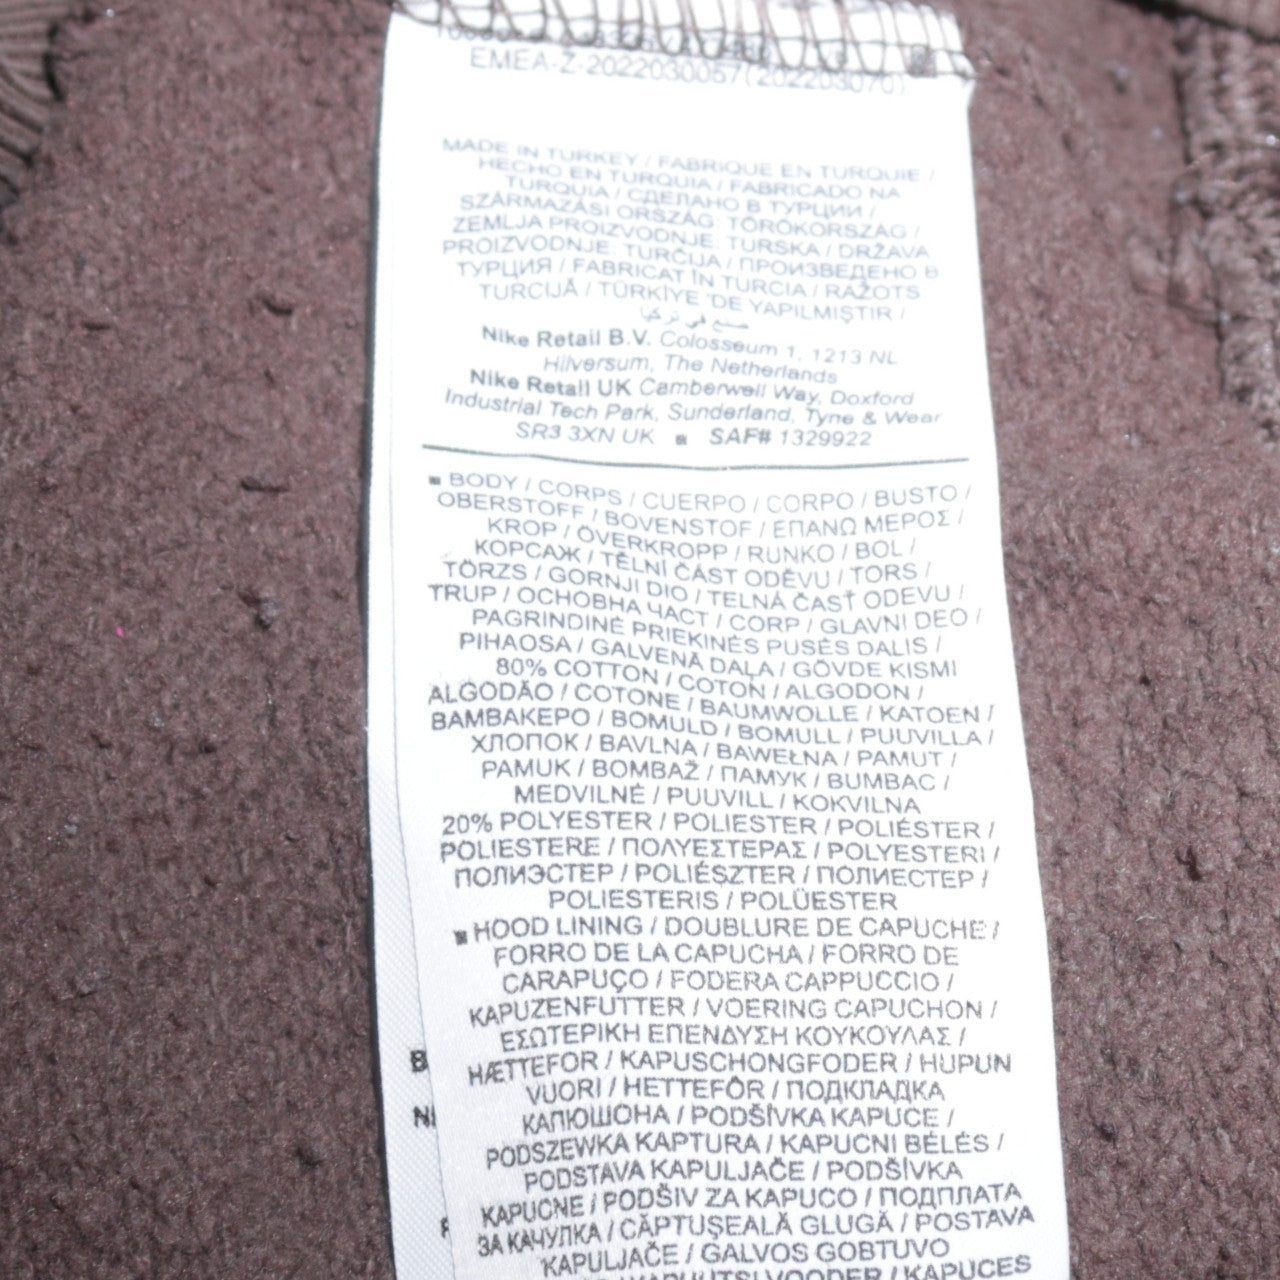 EMEA-Z-2022030057(2022030070)
MADE IN TURKEY / FABRIQUE EN TURQUIE /
HECHO EN TURQUIA / FABRICADO NA
TURQUIA / СДЕЛАНО В ТУРЦИИ /
SZÁRMAZÁSI ORSZÁG: TÖRÖKORSZÁG /
ZEMLJA PROIZVODNJE: TURSKA / DRŽAVA
PROIZVODNJE: TURČIJA / ПРОИЗВЕДЕНО В
ТУРЦИЯ / FABRICAT ÎN TURCIA / RAŽOTS
TURCIJĀ / TÜRKİYE 'DE YAPILMIŞTIR /
صنع في تركيا
Nike Retail B.V. Colosseum 1, 1213 NL
Hilversum, The Netherlands
Nike Retail UK Camberwell Way, Doxford
Industrial Tech Park, Sunderland, Tyne & Wear
SR3 3XN UK ■ SAF# 1329922
■ BODY / CORPS / CUERPO / CORPO / BUSTO /
OBERSTOFF / BOVENSTOF / ΕΠΑΝΩ ΜΕΡΟΣ /
KROP / ÖVERKROPP / RUNKO / BOL /
КОРСАЖ / TĚLNÍ ČÁST ODĚVU / TORS /
TÖRZS / GORNJI DIO / TELNÁ ČASŤ ODEVU /
TRUP / ОСНОВНА ЧАСТ / CORP / GLAVNI DEO /
PAGRINDINĖ PRIEKINĖS PUSĖS DALIS /
PIHAOSA / GALVENĀ DAĻA / GÖVDE KISMI
80% COTTON / COTON / ALGODON /
ALGODÃO / COTONE / BAUMWOLLE / KATOEN /
ΒΑΜΒΑΚΕΡΟ / BOMULD / BOMULL / PUUVILLA /
ХЛОПОК / BAVLNA / BAWEŁNA / PAMUT /
PAMUK / BOMBAŽ / ПАМУК / BUMBAC /
MEDVILNĖ / PUUVILL / KOKVILNA
20% POLYESTER / POLIESTER / POLIÉSTER /
POLIESTERE / ΠΟΛΥΕΣΤΕΡΑΣ / POLYESTERI /
ПОЛИЭСТЕР / POLIÉSZTER / ПОЛИЕСТЕР /
POLIESTERIS / POLÜESTER
■ HOOD LINING / DOUBLURE DE CAPUCHE /
FORRO DE LA CAPUCHA / FORRO DE
CARAPUÇO / FODERA CAPPUCCIO /
KAPUZENFUTTER / VOERING CAPUCHON /
ΕΣΩΤΕΡΙΚΗ ΕΠΕΝΔΥΣΗ ΚΟΥΚΟΥΛΑΣ /
HÆTTEFOR / KAPUSCHONGFODER / HUPUN
VUORI / HETTEFÔR / ПОДКЛАДКА
КАПЮШОНА / PODŠÍVKA KAPUCE /
PODSZEWKA KAPTURA / KAPUCNI BÉLÉS /
PODSTAVA KAPULJAČE / PODŠÍVKA
KAPUCNE / PODŠIV ZA KAPUCO / ПОДПЛАТА
ЗА КАЧУЛКА / CĂPTUŞEALĂ GLUGĂ / POSTAVA
KAPULJAČE / GALVOS GOBTUVO
VOODER / KAPUCES